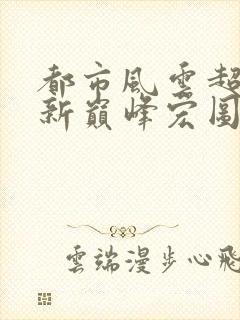 都市風雲超
新巔峰宏圖
雲端漫步心飛